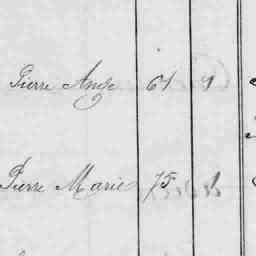 Pierre Ange 61 1
Pierre Marie 75 1